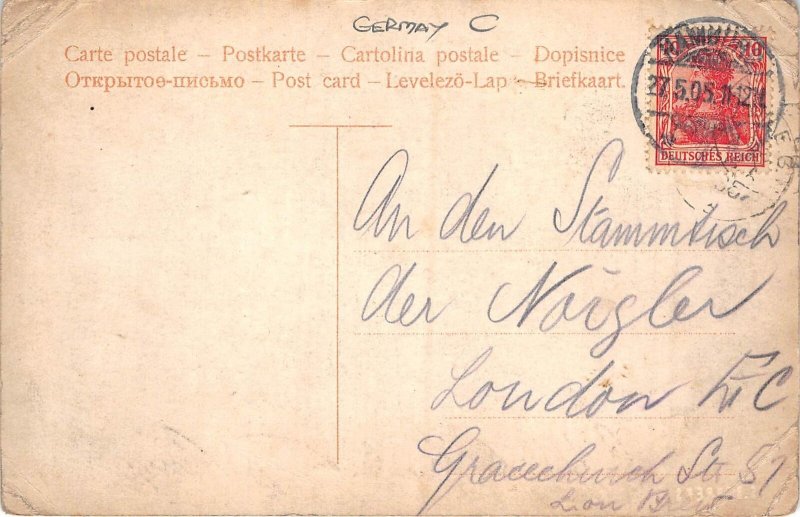 GERMAY C
Carte postale – Postkarte – Cartolina postale – Dopisnice
Открытое-письмо – Post card – Levelező-Lap – Briefkaart.
10
27.5.05.
DEUTSCHES REICH
An den Stammtisch
der Nörgler
London EC
Gracechurch Str 87